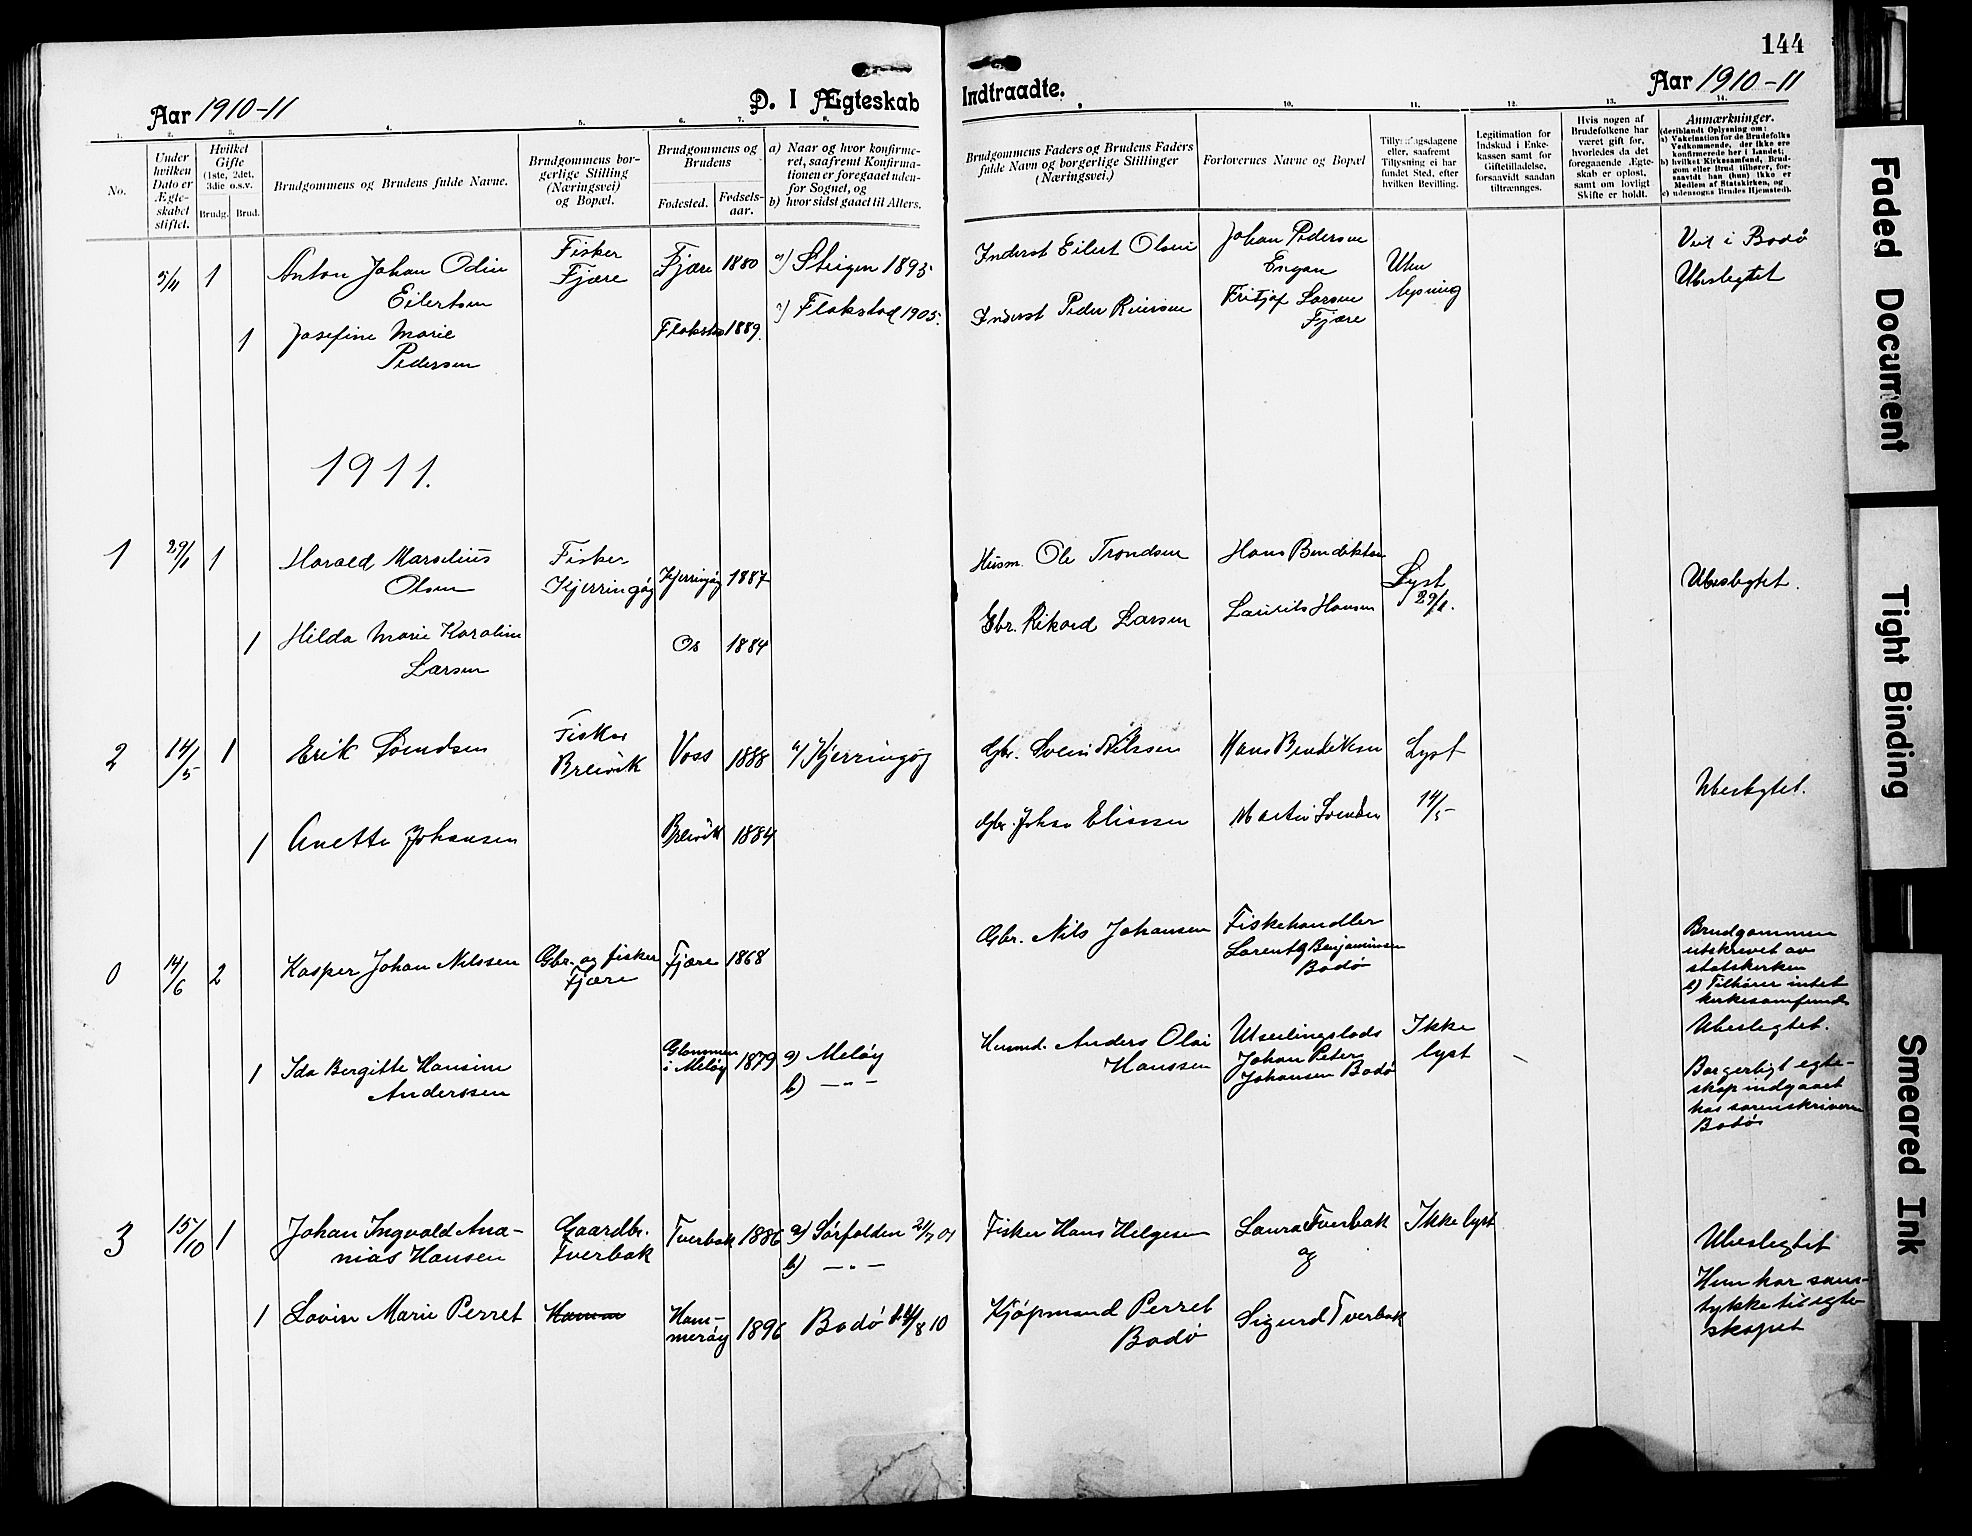 144
Aar 1910-11
D. I Ægteskab
Indtraadte.
Aar 1910-11
1. 2. 3. 4. 5. 6. 7. 8. 9. 10. 11. 12. 13. 14.
No.
Under
hvilken
Dato er
Ægte-
skabet
stiftet.
Hvilket
Gifte
(1ste, 2det,
3die o.s.v.
Brudg.
Brud.
Brudgommens og Brudens fulde Navne.
Brudgommens bor-
gerlige Stilling
(Næringsvei)
og Bopæl.
Brudgommens og
Brudens
Fødested.
Fødsels-
aar.
a) Naar og hvor konfirme-
ret, saafremt Konfirma-
tionen er foregaaet uden-
for Sognet, og
b) hvor sidst gaaet til Alters.
Brudgommens Faders og Brudens Faders
fulde Navn og borgerlige Stillinger
(Næringsvei.)
Forlovernes Navne og Bopæl
Tillysningsdagene
eller, saafremt
Tillysning ei har
fundet Sted, efter
hvilken Bevilling.
Legitimation for
Indskud i Enke-
kassen samt for
Giftetilladelse,
forsaavidt saadan
tiltrænges.
Hvis nogen af
Brudefolkene har
været gift før,
hvorledes da det
foregaaende Ægte-
skab er opløst,
samt om lovligt
Skifte er holdt.
Anmærkninger.
(deriblandt Oplysning om:
a) Vakcination for de Brudefolks
Vedkommende, der ikke ere
konfirmerede her i Landet;
b) hvilket Kirkesamfund, Brud-
gom eller Brud tilhører, for-
saavidt han (hun) ikke er
Medlem af Statskirken, og
c) udensogns Brudes Hjemsted).
5/11 1 Anton Johan Odin
Eilertsen
Fisker
Fjære
Fjære 1880 a) Steigen 1895
Inderst Eilert Olsen
Johan Pedersen
Engan
Uten
lysning
Viet i Bodø
Ubeslegtet
1 Josefine Marie
Pedersen
Flakstad 1889. a) Flakstad 1905.
Inderst Peder Reiersen
Fritjof Larsen
Fjære
1911.
1 29/1 1 Harald Marselius
Olsen
Fisker
Kjerringøy
Kjerringøy 1887
Husm. Ole Trondsen
Hans Bendiktsen
Lyst
29/1.
Ubeslegtet.
1 Hilda Marie Karoline
Larsen
Os 1884
Gbr. Rikard Larsen
Laurits Hansen
2 14/5 1 Erik Svendsen
Fisker
Breivik
Voss 1888 a) Kjerringøy
Gbr. Svein Nilssen
Hans Bendiktsen
Lyst
14/5
Ubeslegtet.
1 Anette Johansen
Breivik 1884
Gbr. Johan Eliassen
Martin Svendsen
0 14/6 2 Kasper Johan Nilssen
Gbr. og fisker
Fjære
Fjære 1868
Gbr. Nils Johansen
Fiskehandler
Lorentz Benjaminsen
Bodø
Brudgommen
utskrevet av
statskirken
b) Tilhører intet
kirkesamfund
Ubeslegtet.
1 Ida Bergitte Hansine
Anderssen
Glommen
i Meløy 1879 a) Meløy
b) — " —
Husmd. Anders Olai
Hanssen
Johan Peter
Johansen Bodø
Ikke
lyst
Borgerligt egte-
skap indgaaet
hos sorenskriveren
Bodø
3 15/10 1 Johan Ingvald Ana-
nias Hansen
Gaardbr.
Tverbak
Tverbak 1886 a) Sørfolden 21/7 01
b) — " —
Fisker Hans Helgesen
Laura Tverbak
og
Ikke lyst
Ubeslegtet
Hun har sam-
tykke til egte-
skapet
1 Lovin Marie Perret
Ham-
merøy 1896 Bodø 14/8 10
Kjøpmand Perret
Bodø
Sigurd Tverbak
Faded Document
Tight Binding
Smeared Ink